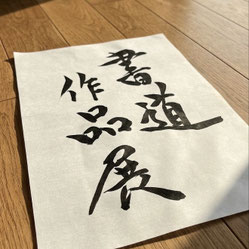 書道
作品展